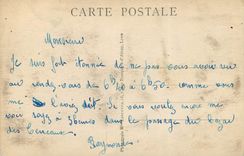 CARTE POSTALE
Monsieur
Je suis fort étonnée de ne pas vous avoir vu
au rendez-vous de 6h40 à 6h50 comme vous
me l'aviez dit. Si vous voulez encore me
voir soyez à 8 heures dans le passage du bazar
des
Raymonde